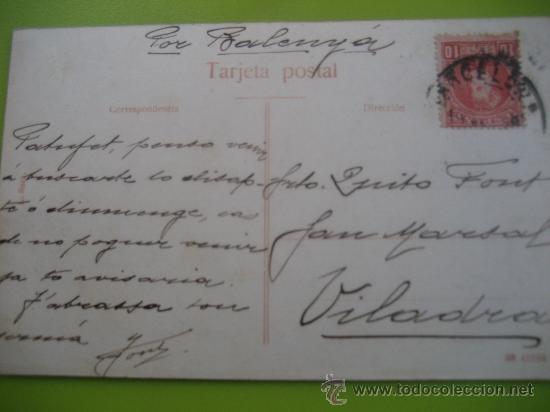 Por Balenyá
Tarjeta postal
Correspondencia
Dirección
Patufet, penso venir
á buscarte lo disap-
te ó diumenge, cas
de no poguer venir
ja tó avisaria.
T'abrassa ton
germá
Srto. Quito Font
San Marsal
Viladra
BARCELO
todocoleccion.net